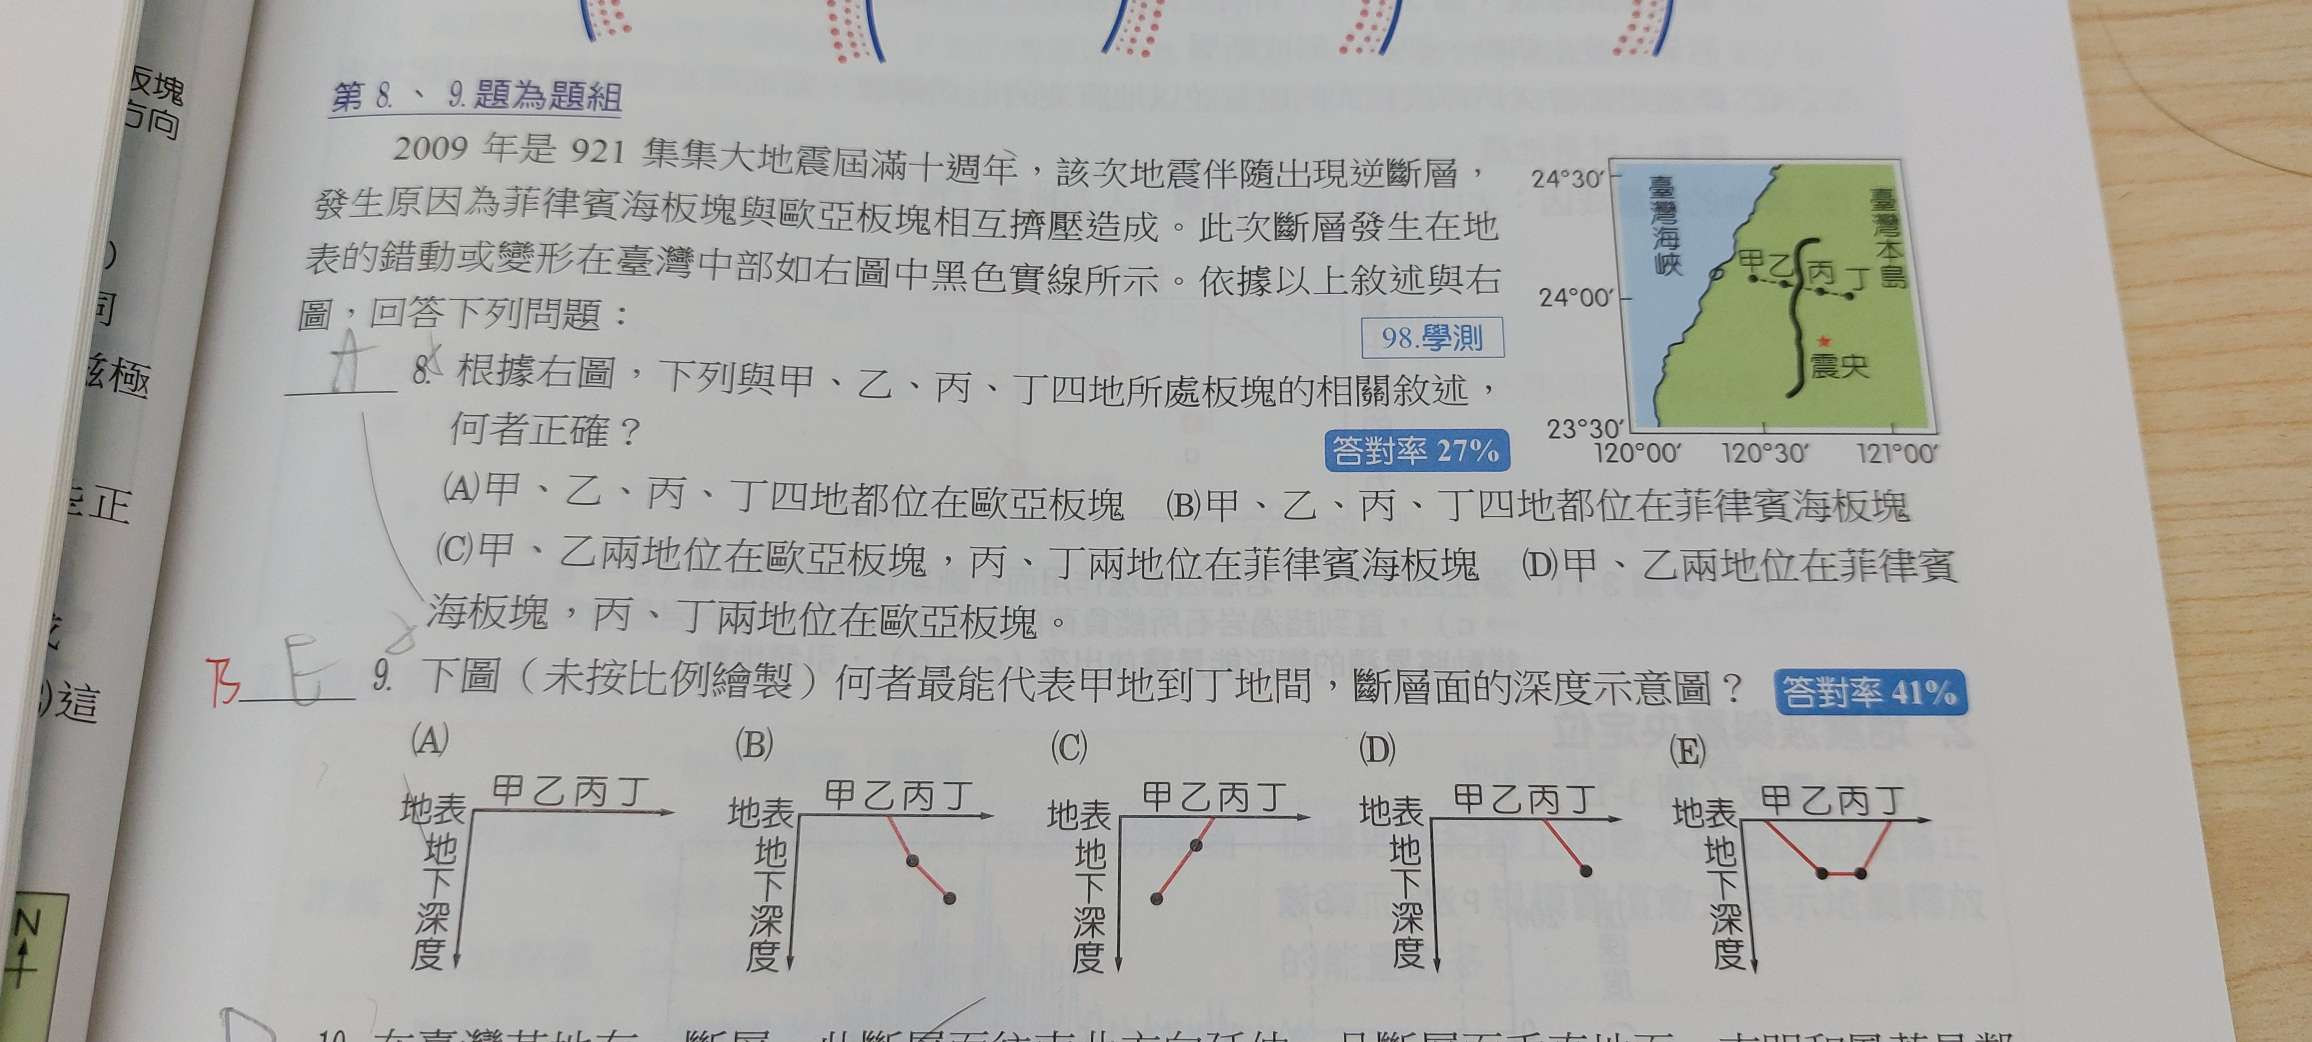 板塊
方向
第 8.、9.題為題組
2009 年是 921 集集大地震屆滿十週年，該次地震伴隨出現逆斷層，
發生原因為菲律賓海板塊與歐亞板塊相互擠壓造成。此次斷層發生在地
表的錯動或變形在臺灣中部如右圖中黑色實線所示。依據以上敘述與右
圖，回答下列問題：
98.學測
24°30′
24°00′
23°30′
120°00′ 120°30′ 121°00′
臺灣海峽
臺灣本島
甲乙丙丁
震央
A 8. 根據右圖，下列與甲、乙、丙、丁四地所處板塊的相關敘述，
何者正確？
答對率 27%
(A)甲、乙、丙、丁四地都位在歐亞板塊 (B)甲、乙、丙、丁四地都位在菲律賓海板塊
(C)甲、乙兩地位在歐亞板塊，丙、丁兩地位在菲律賓海板塊 (D)甲、乙兩地位在菲律賓
海板塊，丙、丁兩地位在歐亞板塊。
B E 9. 下圖（未按比例繪製）何者最能代表甲地到丁地間，斷層面的深度示意圖？ 答對率 41%
(A) (B) (C) (D) (E)
甲乙丙丁 甲乙丙丁 甲乙丙丁 甲乙丙丁 甲乙丙丁
地表 地表 地表 地表 地表
地下深度 地下深度 地下深度 地下深度 地下深度
同
磁極
正
這
N